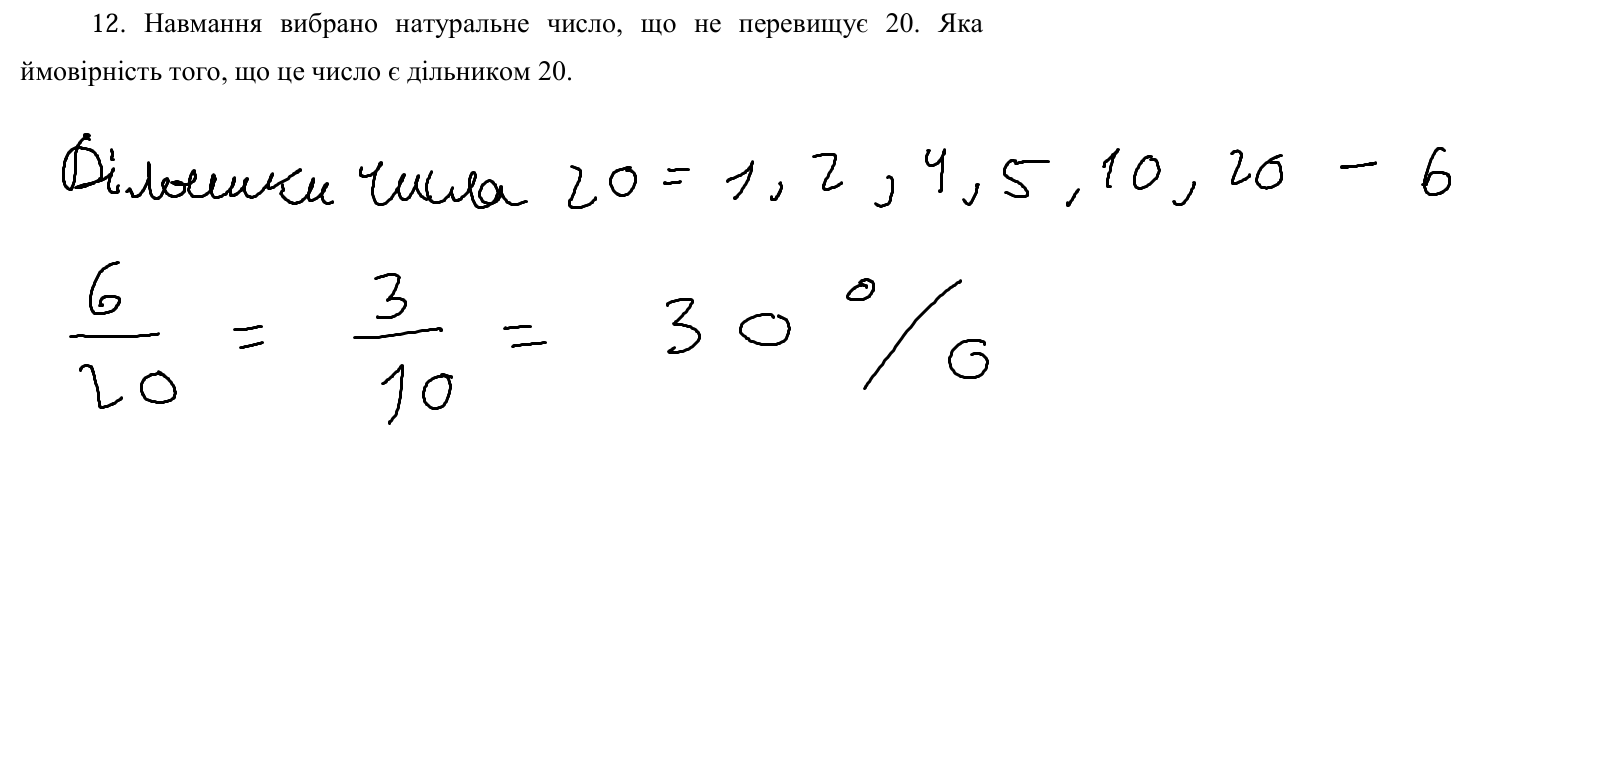 12. Навмання вибрано натуральне число, що не перевищує 20. Яка
ймовірність того, що це число є дільником 20.
Дільники числа 20 = 1, 2, 4, 5, 10, 20 - 6
6/20 = 3/10 = 30 %